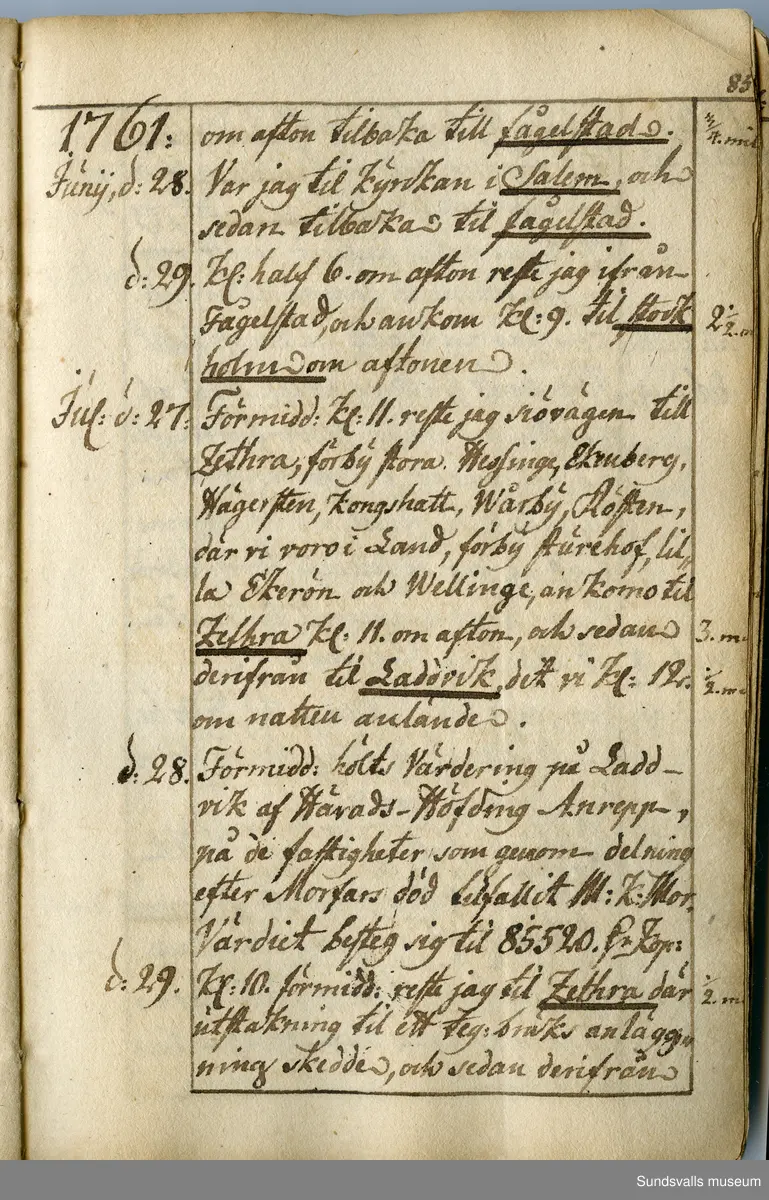 85
1761: om afton tilbaka till Fågelstad. 3/4. mil
Junij, d: 28. Var jag til Kyrkan i Salem, och
sedan tilbaka til Fågelstad.
d: 29. Kl: half 6. om afton reste jag ifrån
Fågelstad, och ankom Kl: 9. til Stock 2 1/2. m
holm om aftonen.
Jul: d: 27: Förmidd: Kl: 11. reste jag siövägen till
Zethra, förbÿ stora Hessinge, Ekenberg,
Hägersten, Kongshatt, Wårbÿ, Slösten,
där vi voro i Land, förbÿ Sturehof, lil-
la Ekerön och Wellinge, ankomo til
Zethra Kl: 11. om afton, och sedan 3. m.
derifrån til Laddvik, dit vi Kl: 12. 1/2. m
om natten anlände.
d: 28. Förmidd: hölts Värdering på Ladd-
vik af Härads-Höfding Anrepp,
på de fastigheter som genom delning
efter Morfars död tilfallit M: K: Mor.
Värdiet besteg sig til 85520. Dr Kop:
d: 29. Kl: 10. förmidd: reste jag til Zethra där 1/2. m
utstakning til ett Teg: bruks anlägg-
ning skedde, och sedan derifrån
Sundsvalls museum